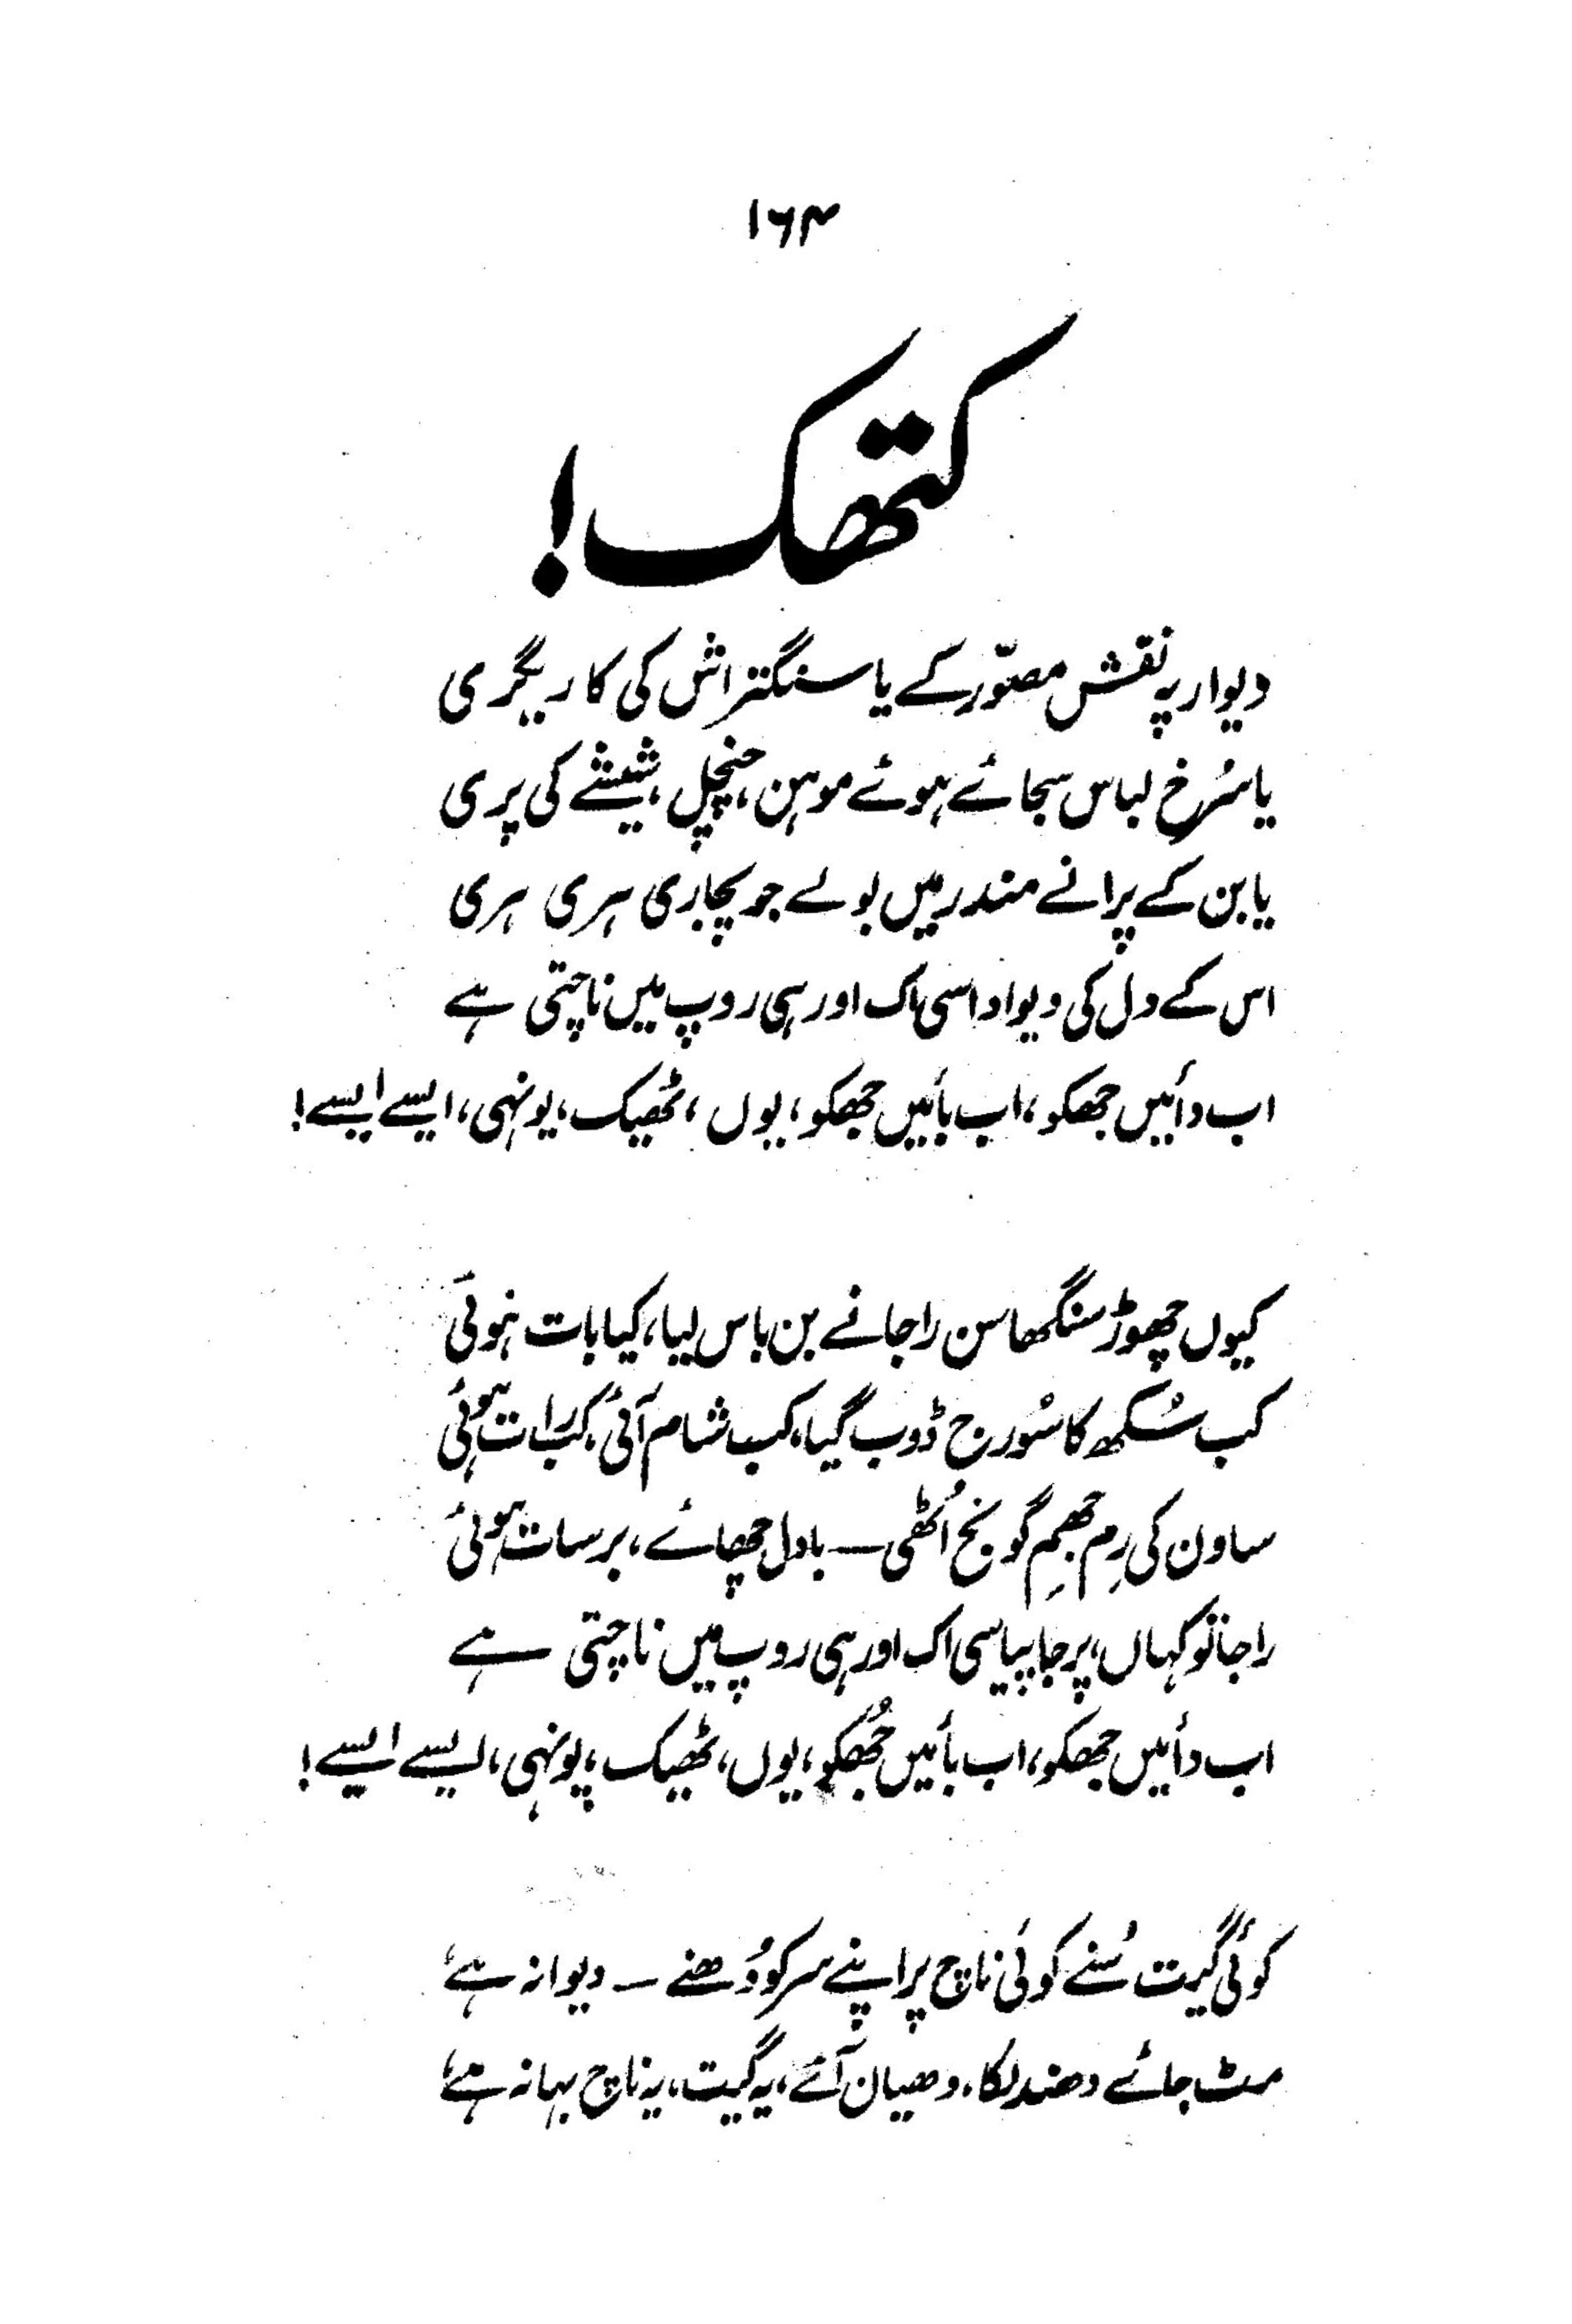 ۱۶۴
کتھک!
دیوار پہ نقش مصوّر کے یا سنگتراش کی کاریگری
یا سُرخ لباس سجائے ہوئے موہن، چنچل، شیشے کی پری
یا بن کے پرانے مندر میں بولے جو پجاری ہری ہری
اس کے دل کی دیوداسی اک اور ہی روپ میں ناچتی ہے
اب دائیں جھکو، اب بائیں جھکو، یوں، ٹھیک، یونہی، ایسے ایسے!
کیوں چھوڑ سنگھاسن راجا نے بن باس لیا، کیا بات ہوئی
کب سُکھ کا سُورج ڈوب گیا، کب شام آئی، کب رات ہوئی
ساون کی رِم جھِم گونج اُٹھی ــ بادل چھائے، برسات ہوئی
راجا تو کہاں، پرجا پیاسی اک اور ہی روپ میں ناچتی ہے
اب دائیں جھکو، اب بائیں جھُکو، یوں، ٹھیک، یونہی، ایسے ایسے!
کوئی گیت سُنے کوئی ناچ پر اپنے سر کو دُھنے ــ دیوانہ ہے
مٹ جائے دھندلکا، دھیان آئے، یہ گیت، یہ ناچ بہانہ ہے